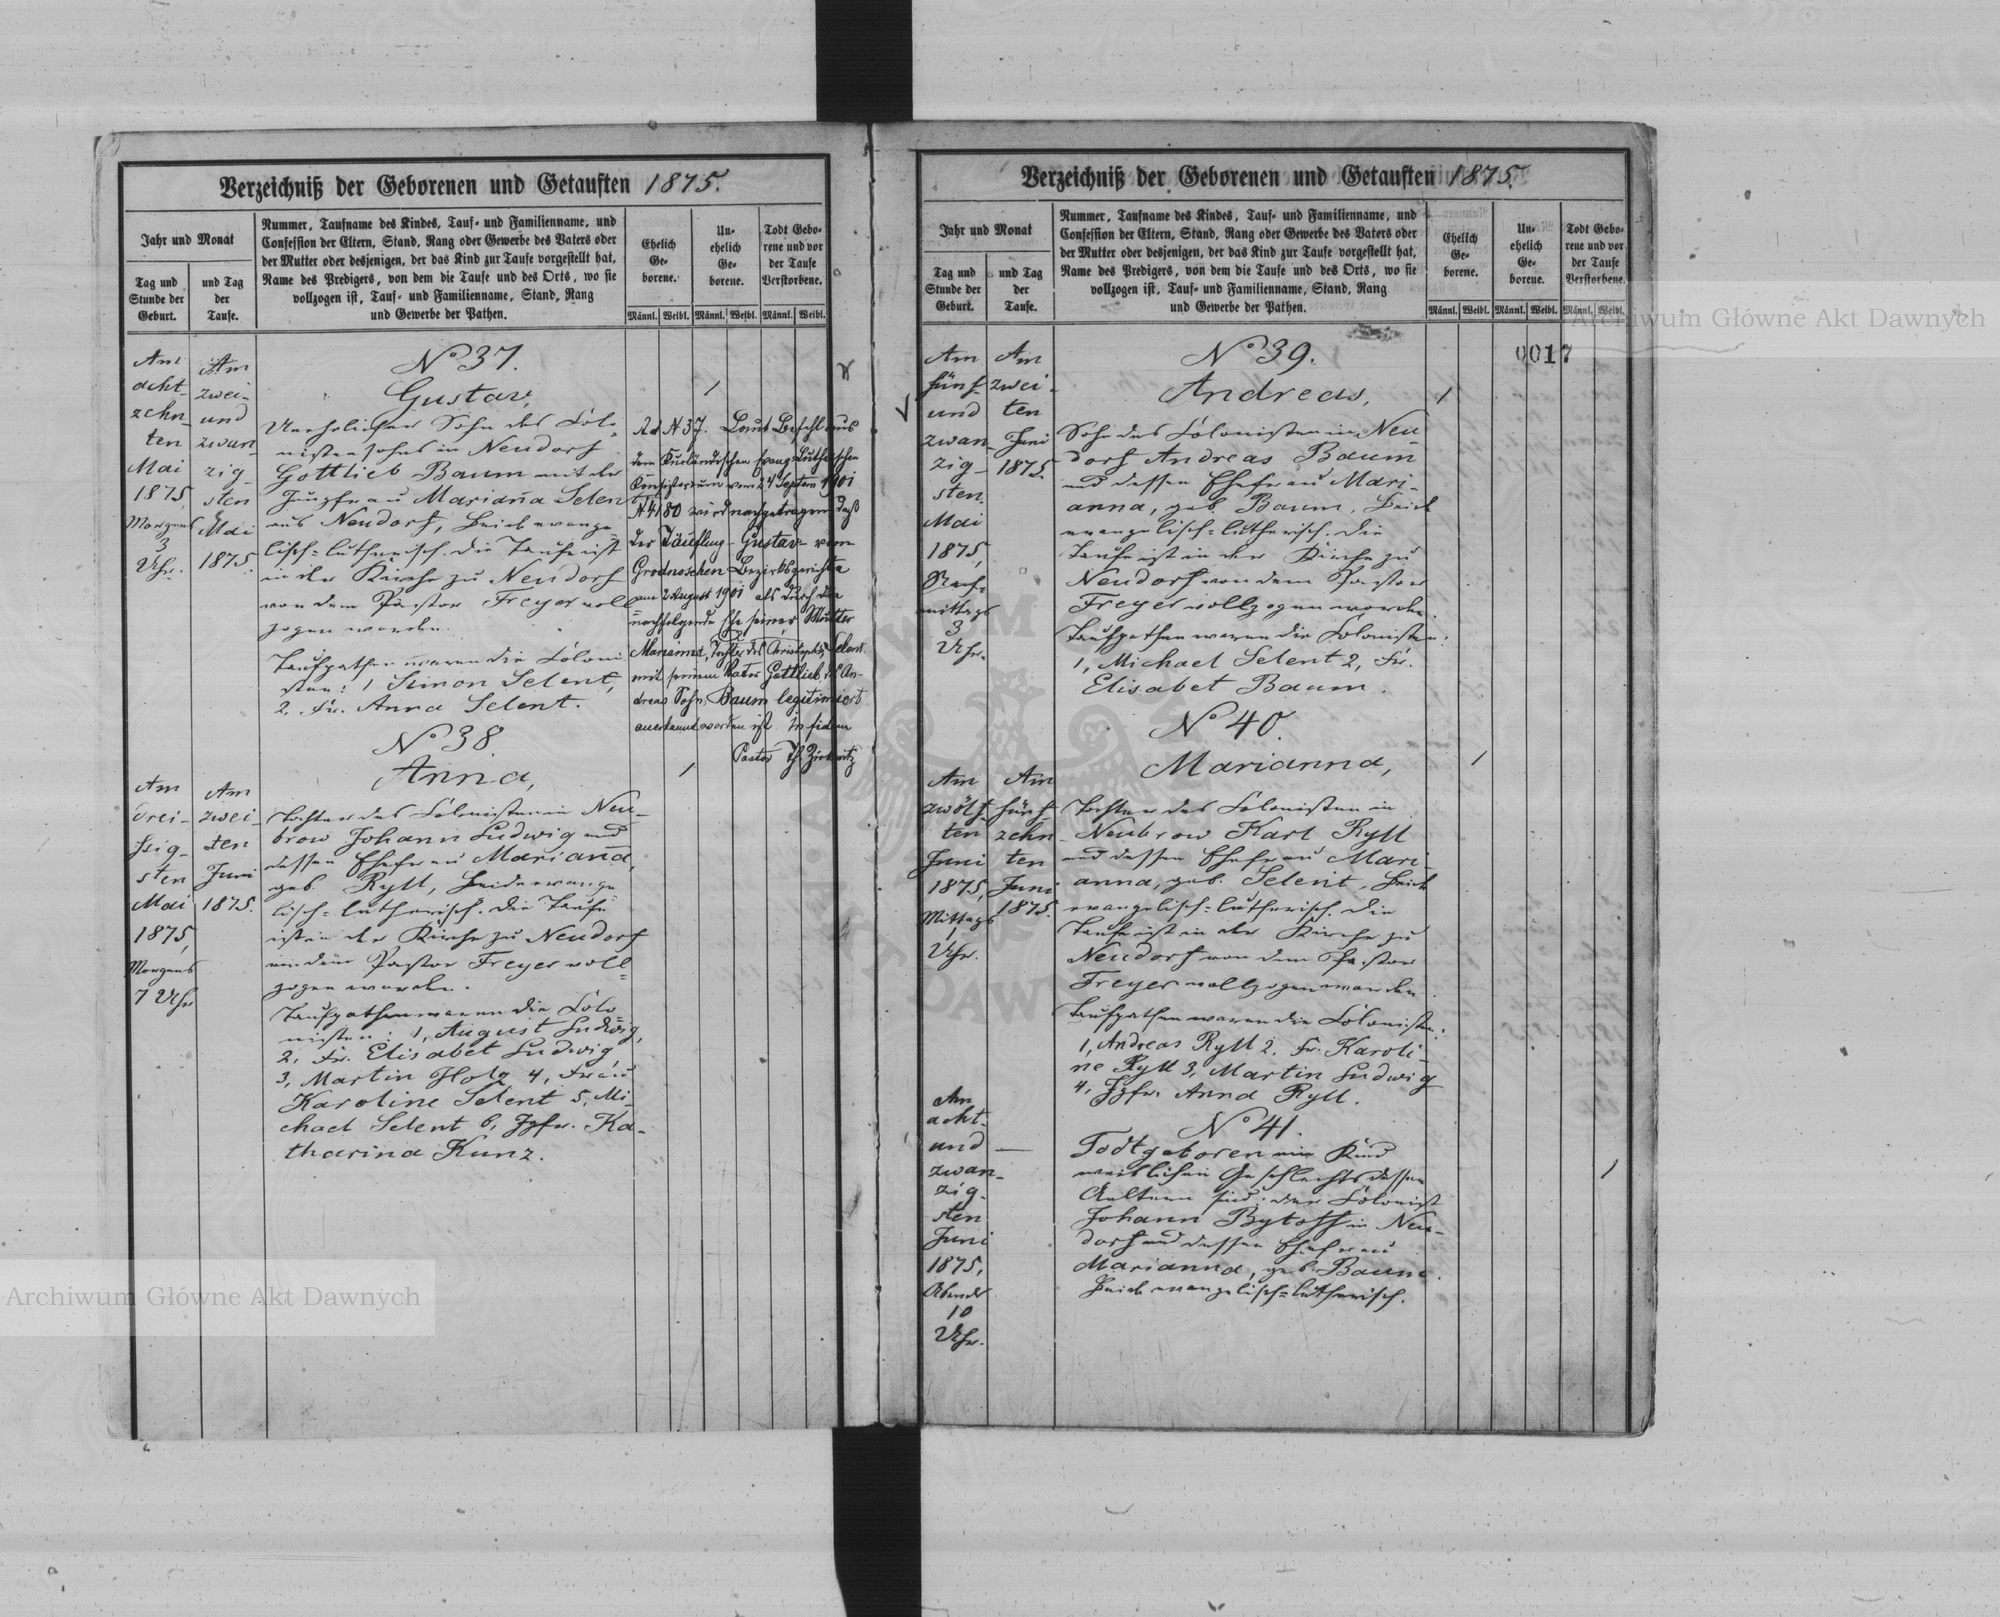 Verzeichniß der Geborenen und Getauften 1875.
Jahr und Monat
Tag und
Stunde der
Geburt.
und Tag
der
Taufe.
Nummer, Taufname des Kindes, Tauf- und Familienname, und
Confession der Eltern, Stand, Rang oder Gewerbe des Vaters oder
der Mutter oder desjenigen, der das Kind zur Taufe vorgestellt hat,
Name des Predigers, von dem die Taufe und des Orts, wo sie
vollzogen ist, Tauf- und Familienname, Stand, Rang
und Gewerbe der Pathen.
Ehelich
Ge-
borene.
Un-
ehelich
Ge-
borene.
Todt Gebo-
rene und vor
der Taufe
Verstorbene.
Männl. Weibl. Männl. Weibl. Männl. Weibl.
Am
acht-
zehn-
ten
Mai
1875,
Morgens
3
Uhr.
Am
zwei-
und
zwan-
zig-
sten
Mai
1875.
No 37.
Gustav,
1
Unehelicher Sohn des Colo-
nistensohns in Neudorf
Gottlieb Baum mit der
Jungfrau Marianna Selent
aus Neudorf, Beide evange-
lisch-lutherisch. Die Taufe ist
in der Kirche zu Neudorf
von dem Pastor Freyer voll-
zogen worden.
Taufpathen waren die Coloni-
sten: 1, Simon Selent,
2, Fr. Anna Selent.
Ad N 37. Laut Befehl aus
dem Kurländischen Evang. Lutherischen
Konsistorium vom 24 Septem 1901
N 4180 wird nachgetragen, daß
der Täufling Gustav vom
Grodnoschen Bezirksgerichte
am 2 August 1901 als durch die
nachfolgende Ehe seiner Mutter
Marianna, Tochter des Christoph, Selent
mit seinem Vater Gottlieb, des An-
dreas Sohn, Baum legitimiert
anerkannt worden ist. In fidem
Pastor Th.
No 38.
Anna,
1
Am
drei-
ssig-
sten
Mai
1875,
Morgens
7 Uhr
Am
zwei-
ten
Juni
1875.
Tochter des Colonisten in Neu-
brow Johann Ludwig und
dessen Ehefrau Marianna,
geb. Ryll, Beide evange-
lisch-lutherisch. Die Taufe
ist in der Kirche zu Neudorf
von dem Pastor Freyer voll-
zogen worden.
Taufpathen waren die Colo-
nisten: 1, August Ludwig,
2, Fr. Elisabet Ludwig,
3, Martin Holz 4, Frau
Karoline Selent 5, Mi-
chael Selent 6, Jgfr. Ka-
tharina Kunz.
Verzeichniß der Geborenen und Getauften 1875.
Jahr und Monat
Tag und
Stunde der
Geburt.
und Tag
der
Taufe.
Nummer, Taufname des Kindes, Tauf- und Familienname, und
Confession der Eltern, Stand, Rang oder Gewerbe des Vaters oder
der Mutter oder desjenigen, der das Kind zur Taufe vorgestellt hat,
Name des Predigers, von dem die Taufe und des Orts, wo sie
vollzogen ist, Tauf- und Familienname, Stand, Rang
und Gewerbe der Pathen.
Ehelich
Ge-
borene.
Un-
ehelich
Ge-
borene.
Todt Gebo-
rene und vor
der Taufe
Verstorbene.
Männl. Weibl. Männl. Weibl. Männl. Weibl.
0017
Am
fünf-
und
zwan-
zig-
sten
Mai
1875,
Nach-
mittags
3
Uhr.
Am
zwei-
ten
Juni
1875.
No 39.
Andreas,
1
Sohn des Colonisten in Neu-
dorf Andreas Baum
und dessen Ehefrau Mari-
anna, geb. Baum, Beide
evangelisch-lutherisch. Die
Taufe ist in der Kirche zu
Neudorf von dem Pastor
Freyer vollzogen worden.
Taufpathen waren die Colonisten:
1, Michael Selent 2, Fr.
Elisabet Baum.
No 40.
Marianna,
1
Am
zwölf-
ten
Juni
1875,
Mittags
1
Uhr.
Am
fünf-
zehn-
ten
Juni
1875.
Tochter des Colonisten in
Neubrow Karl Ryll
und dessen Ehefrau Mari-
anna, geb. Selent, Beide
evangelisch-lutherisch. Die
Taufe ist in der Kirche zu
Neudorf von dem Pastor
Freyer vollzogen worden.
Taufpathen waren die Colonisten:
1, Andreas Ryll 2, Fr. Karoli-
ne Ryll 3, Martin Ludwig
4, Jgfr. Anna Ryll.
Am
acht-
und
zwan-
zig-
sten
Juni
1875,
Abends
10
Uhr.
No 41.
1
Todtgeboren ein Kind
weiblichen Geschlechts dessen
Aeltern sind: der Colonist
Johann Bytoff in Neu-
dorf und dessen Ehefrau
Marianna, geb. Baum.
Beide evangelisch-lutherisch.
Archiwum Główne Akt Dawnych
Archiwum Główne Akt Dawnych